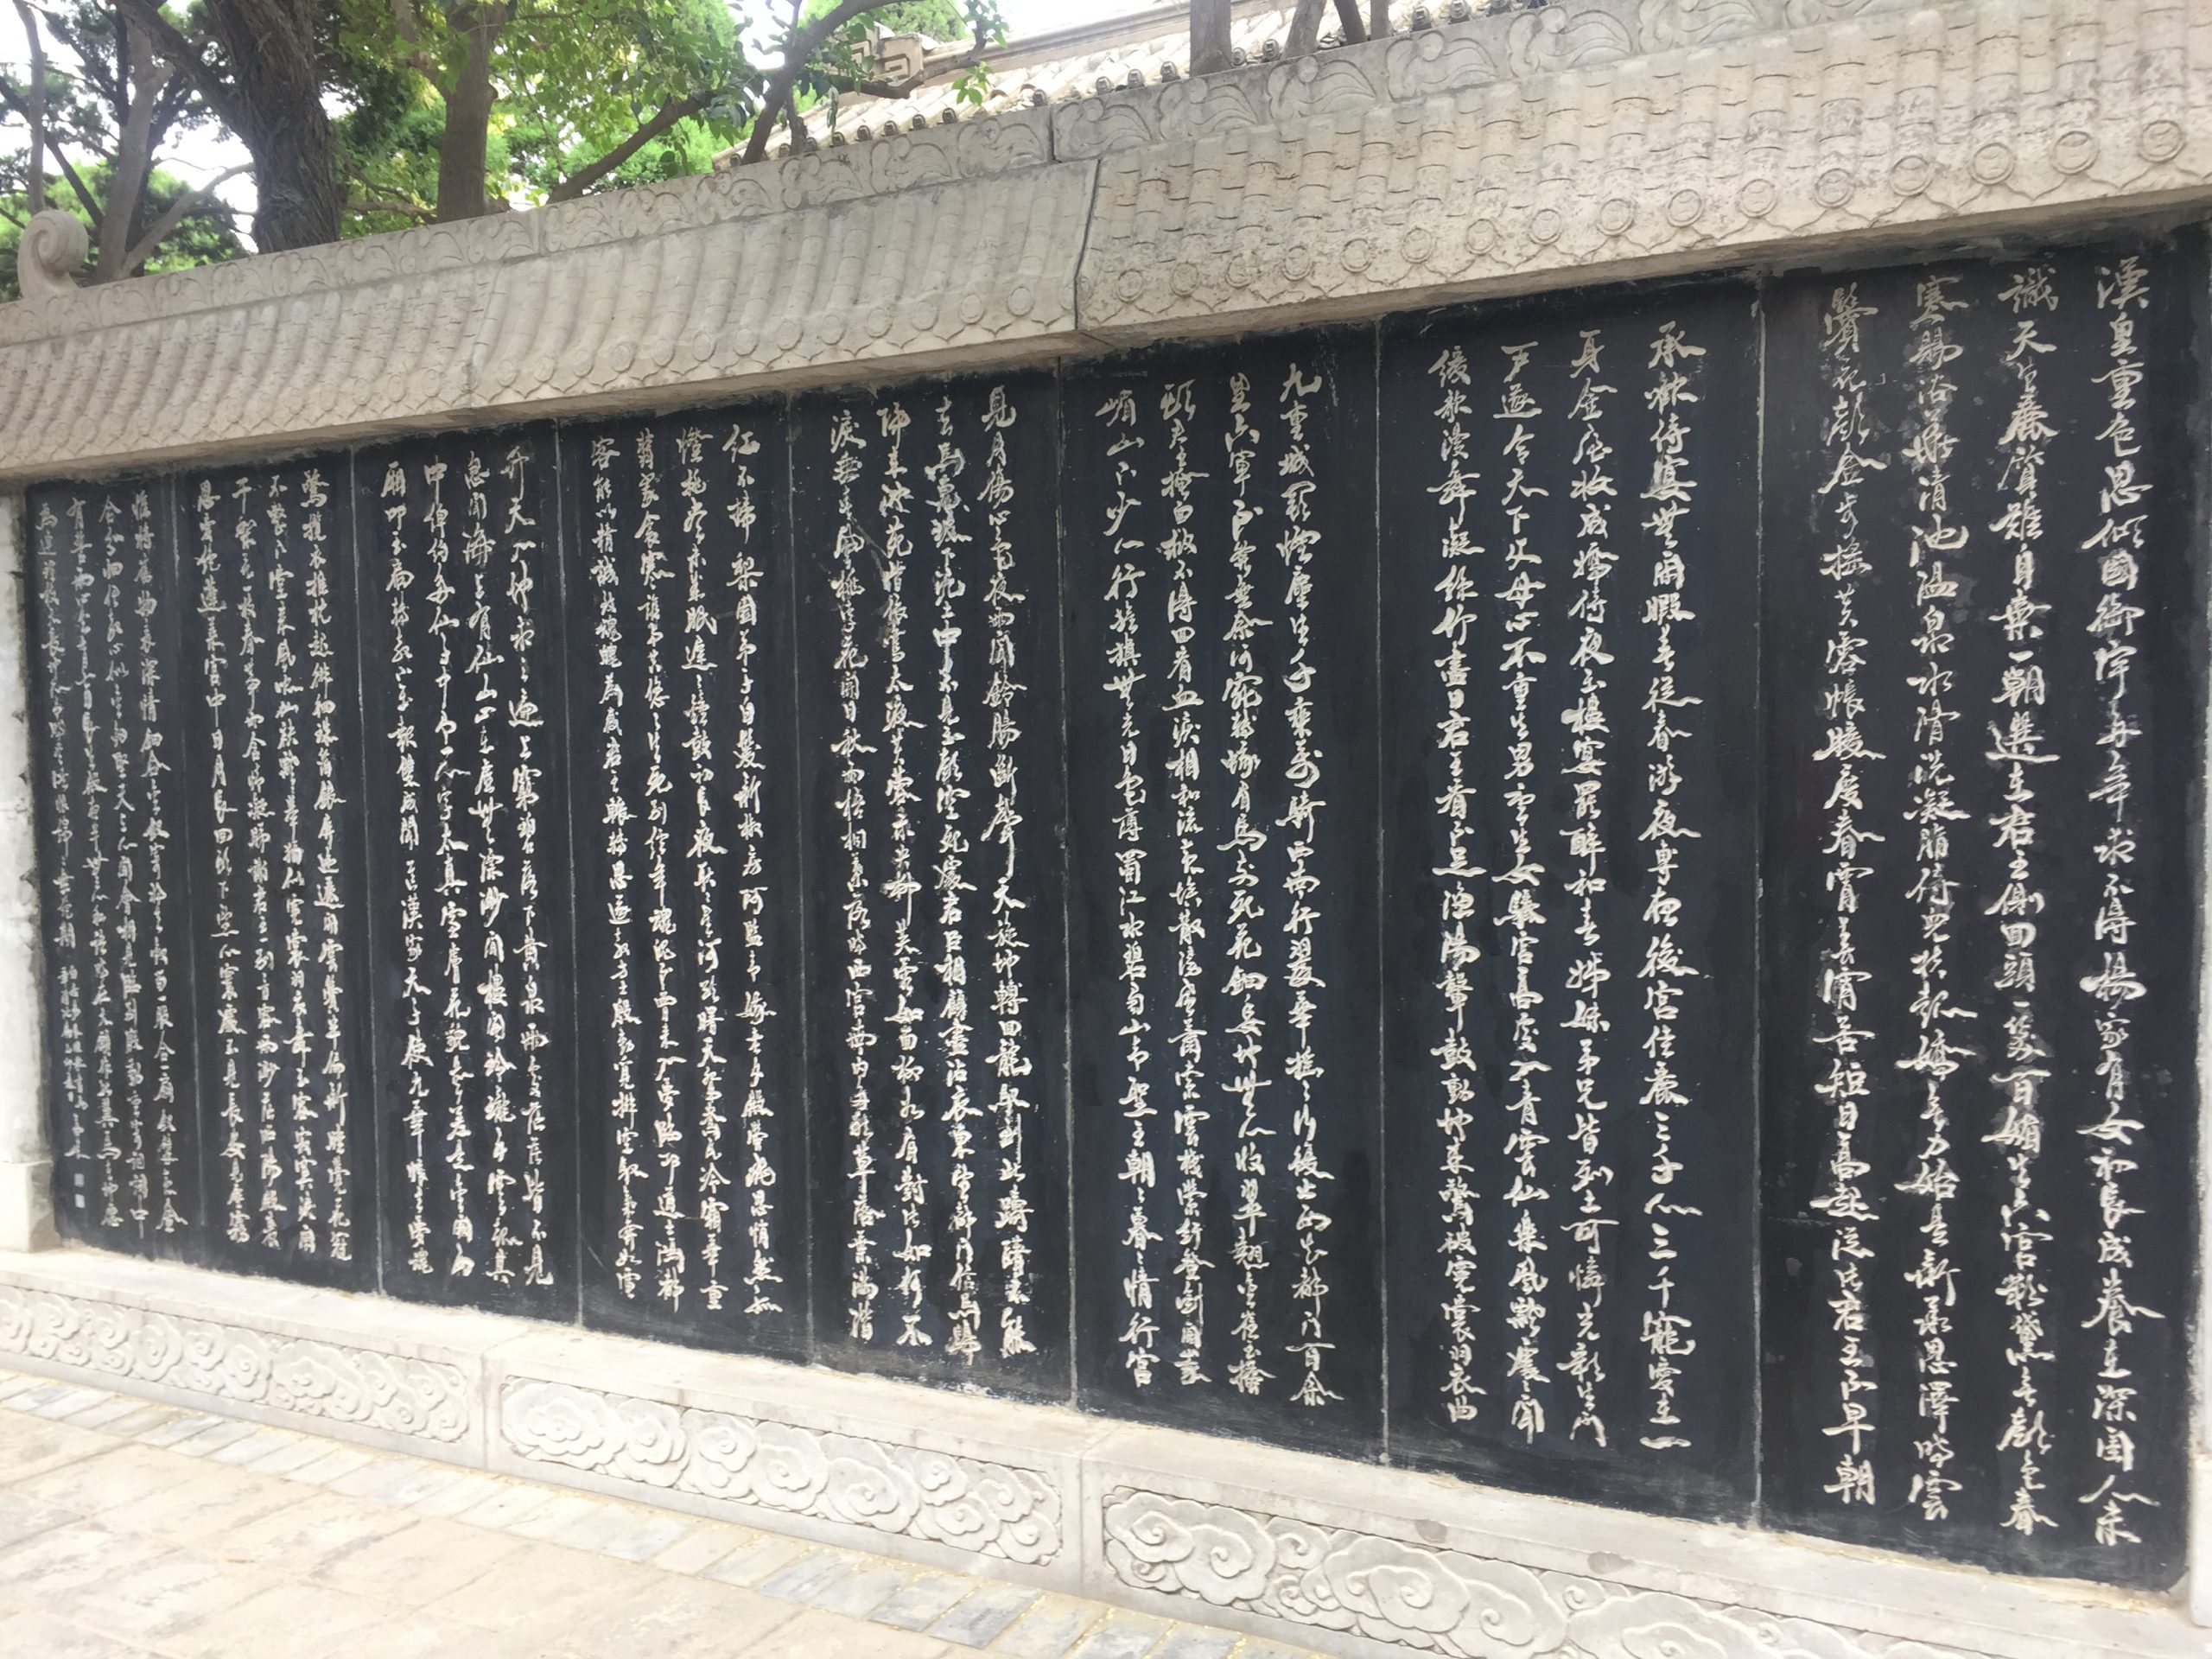 漢皇重色思傾國御宇多年求不得楊家有女初長成養在深閨人未
識天生麗質難自棄一朝選在君王側回頭一笑百媚生六宮粉黛無顏色春
寒賜浴華清池溫泉水滑洗凝脂侍兒扶起嬌無力始是新承恩澤時雲
鬢花顏金步搖芙蓉帳暖度春宵春宵苦短日高起從此君王不早朝
承歡侍宴無閑暇春從春游夜專夜後宮佳麗三千人三千寵愛在一
身金屋妝成嬌侍夜玉樓宴罷醉和春姊妹弟兄皆列土可憐光彩生門
戶遂令天下父母心不重生男重生女驪宮高處入青雲仙樂風飄處處聞
緩歌漫舞凝絲竹盡日君王看不足漁陽鼙鼓動地來驚破霓裳羽衣曲
九重城闕煙塵生千乘萬騎西南行翠華搖搖行復止西出都門百餘
里六軍不發無奈何宛轉蛾眉馬前死花鈿委地無人收翠翹金雀玉搔
頭君王掩面救不得回看血淚相和流黃埃散漫風蕭索雲棧縈紆登劍閣峨
嵋山下少人行旌旗無光日色薄蜀江水碧蜀山青聖主朝朝暮暮情行宮
見月傷心色夜雨聞鈴腸斷聲天旋地轉回龍馭到此躊躇不能
去馬嵬坡下泥土中不見玉顏空死處君臣相顧盡沾衣東望都門信馬歸
歸來池苑皆依舊太液芙蓉未央柳芙蓉如面柳如眉對此如何不
淚垂春風桃李花開日秋雨梧桐葉落時西宮南內多秋草落葉滿階
紅不掃梨園弟子白髮新椒房阿監青娥老夕殿螢飛思悄然孤
燈挑盡未成眠遲遲鐘鼓初長夜耿耿星河欲曙天鴛鴦瓦冷霜華重
翡翠衾寒誰與共悠悠生死別經年魂魄不曾來入夢臨邛道士鴻都
客能以精誠致魂魄為感君王輾轉思遂教方士殷勤覓排空馭氣奔如電
升天入地求之遍上窮碧落下黃泉兩處茫茫皆不見
忽聞海上有仙山山在虛無縹緲間樓閣玲瓏五雲起其
中綽約多仙子中有一人字太真雪膚花貌參差是金闕西
廂叩玉扃轉教小玉報雙成聞道漢家天子使九華帳裏夢魂
驚攬衣推枕起徘徊珠箔銀屏迤邐開雲鬢半偏新睡覺花冠
不整下堂來風吹仙袂飄飄舉猶似霓裳羽衣舞玉容寂寞淚闌
干梨花一枝春帶雨含情凝睇謝君王一別音容兩渺茫昭陽殿裏
恩愛絕蓬萊宮中日月長回頭下望人寰處不見長安見塵霧
惟將舊物表深情鈿合金釵寄將去釵留一股合一扇釵擘黃金
合分鈿但教心似金鈿堅天上人間會相見臨別殷勤重寄詞詞中
有誓兩心知七月七日長生殿夜半無人私語時在天願作比翼鳥在地願
為連理枝天長地久有時盡此恨綿綿無絕期